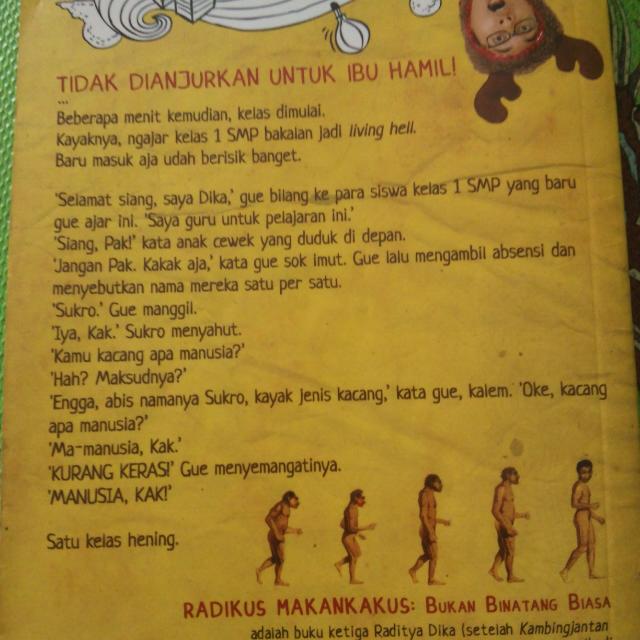 TIDAK DIANJURKAN UNTUK IBU HAMIL!
...
Beberapa menit kemudian, kelas dimulai.
Kayaknya, ngajar kelas 1 SMP bakalan jadi living hell.
Baru masuk aja udah berisik banget.
'Selamat siang, saya Dika,' gue bilang ke para siswa kelas 1 SMP yang baru
gue ajar ini. 'Saya guru untuk pelajaran ini.'
'Siang, Pak!' kata anak cewek yang duduk di depan.
'Jangan Pak. Kakak aja,' kata gue sok imut. Gue lalu mengambil absensi dan
menyebutkan nama mereka satu per satu.
'Sukro.' Gue manggil.
'Iya, Kak.' Sukro menyahut.
'Kamu kacang apa manusia?'
'Hah? Maksudnya?'
'Engga, abis namanya Sukro, kayak jenis kacang,' kata gue, kalem. 'Oke, kacang
apa manusia?'
'Ma-manusia, Kak.'
'KURANG KERAS!' Gue menyemangatinya.
'MANUSIA, KAK!'
Satu kelas hening.
RADIKUS MAKANKAKUS: BUKAN BINATANG BIASA
adalah buku ketiga Raditya Dika (setelah Kambingjantan